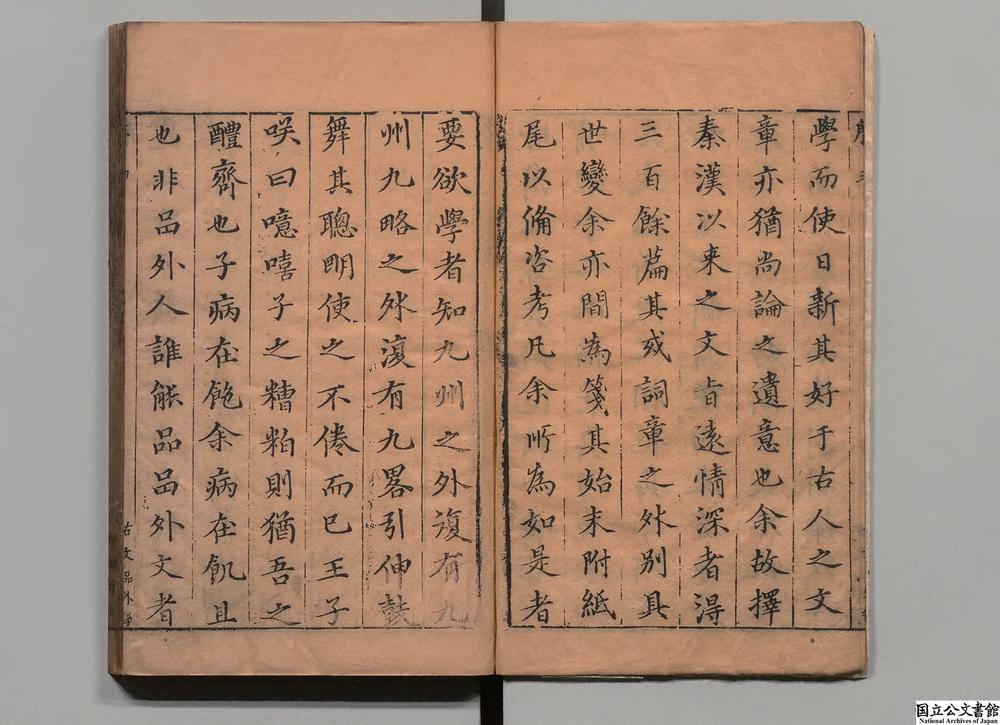 學而使日新其好于古人之文
章亦猶尚論之遺意也余故擇
秦漢以來之文旨遠情深者淂
三百餘篇其或詞章之外别具
世變余亦間為箋其始末附紙
尾以備咨考凡余所為如是者
要欲學者知九州之外復有九
州九略之外復有九畧引伸鼓
舞其聰明使之不倦而已王子
咲曰噫嘻子之糟粕則猶吾之
醴齊也子病在飽余病在飢且
也非品外人誰能品品外文者
古文品外
国立公文書館
National Archives of Japan